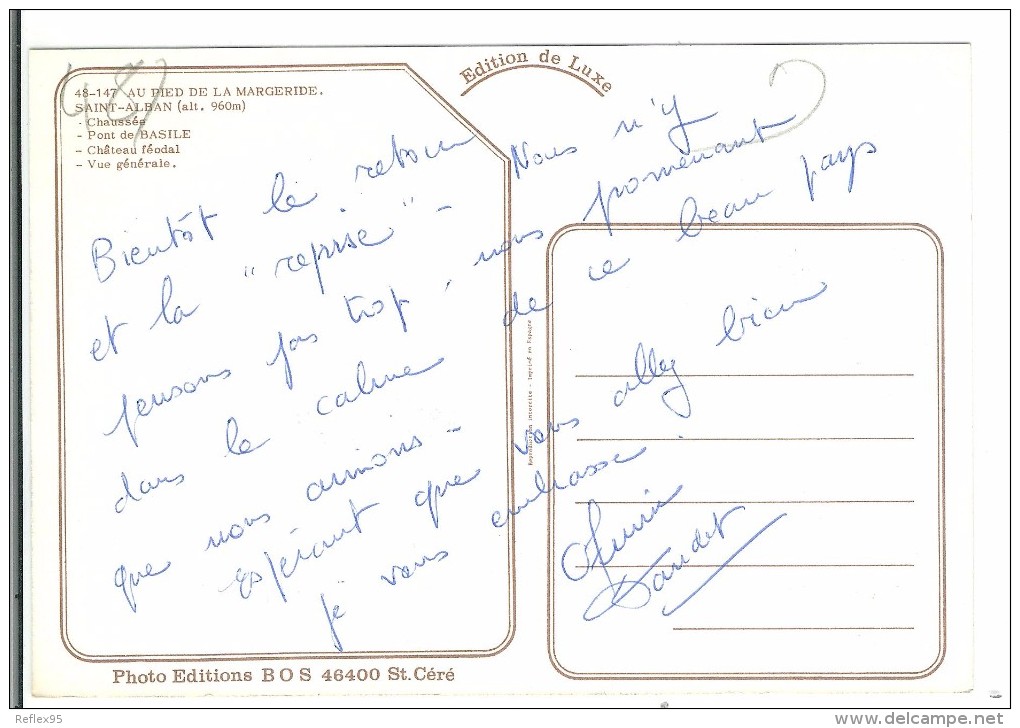 Edition de Luxe
48
48-147 AU PIED DE LA MARGERIDE.
SAINT-ALBAN (alt. 960m)
- Chaussée
- Pont de BASILE
- Château féodal
- Vue générale.
Bientôt le retour
et la "reprise" - Nous n'y
pensons pas trop nous promenant
dans le calme de ce beau pays
que nous aimons -
Espérant que vous allez bien
je vous embrasse.
Daudet
Reproduction interdite - Imprimé en Espagne
Photo Editions BOS 46400 St.Céré
Reflex95
delcampe.net